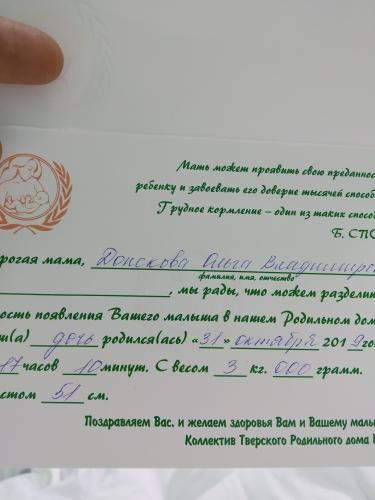 Мать может проявить свою преданнос
ребенку и завоевать его доверие тысячей способ
Грудное кормление – один из таких спосо
Б. СПО
рогая мама, Донскова Ольга Владимиро
фамилия, имя, отчество
, мы рады, что можем разделит
ость появления Вашего малыша в нашем Родильном дом
ш(а) дочь родился(ась) «31» октября 2019 го
17 часов 10 минут. С весом 3 кг. 000 грамм.
стом 51 см.
Поздравляем Вас. и желаем здоровья Вам и Вашему малы
Коллектив Тверского Родильного дома